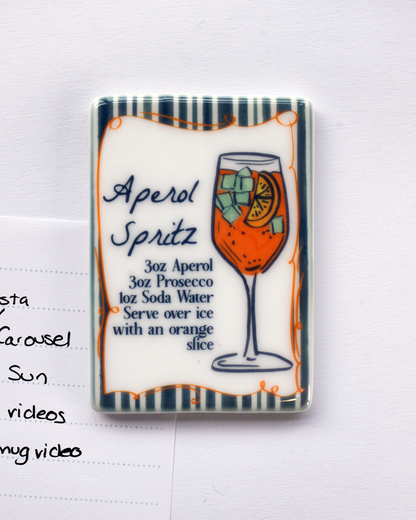 Aperol
Spritz
3oz Aperol
3oz Prosecco
1oz Soda Water
Serve over ice
with an orange
slice
sta
Carousel
Sun
videos
mug video